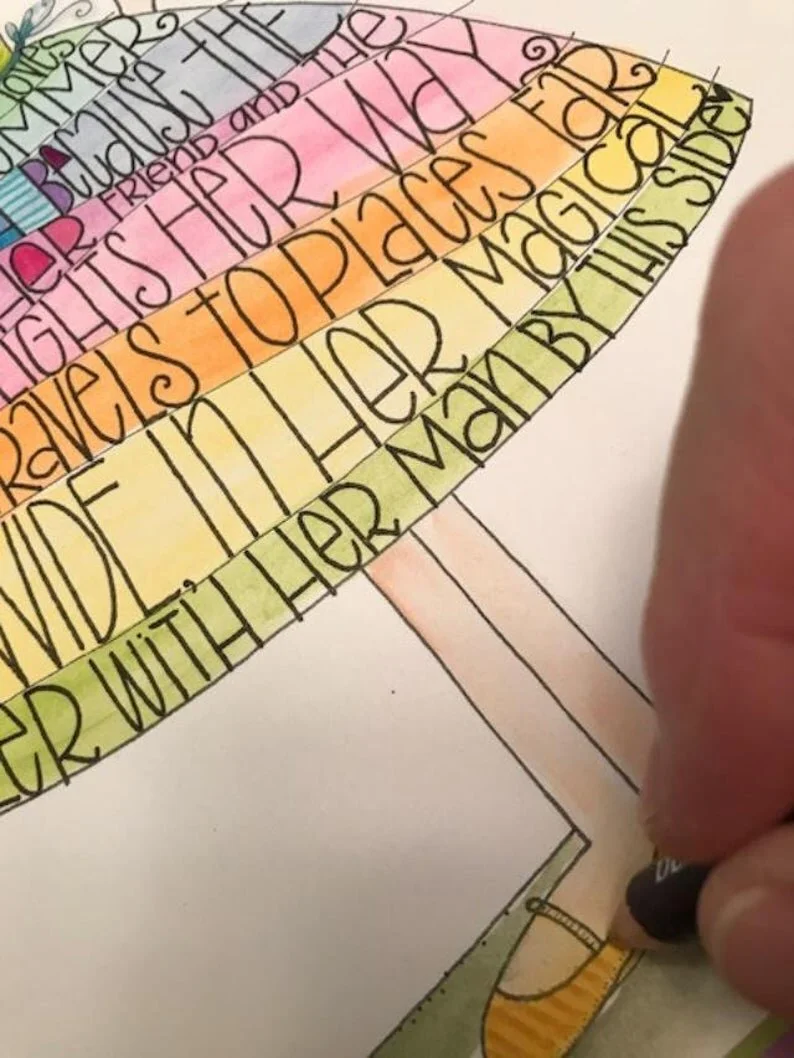 LOVeS
MMeR
Because THE
HeR FRIenD anD THE
IGHTS HeR WaY
RaveLS TO PLaceS FaR
WIDE In HeR MaGICaL
eR WITH HeR Man BY THIS SIDe